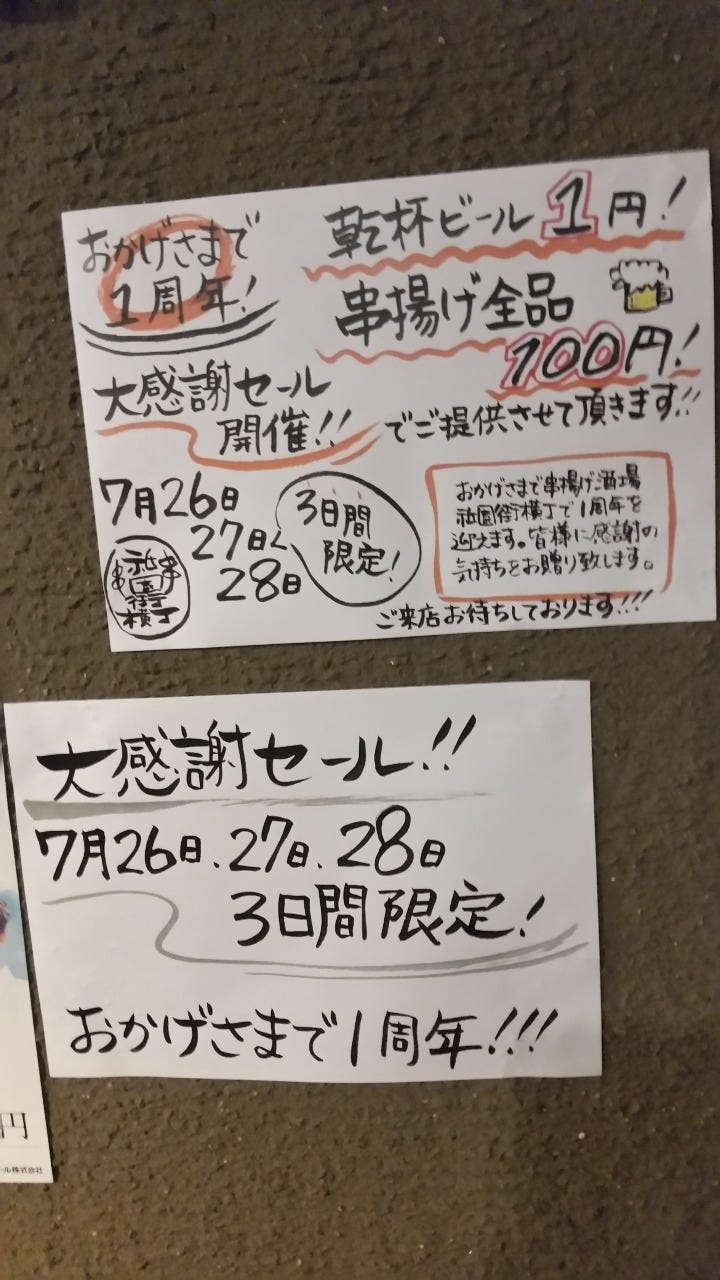 おかげさまで
1周年!
大感謝セール
開催!!
7月26日
27日
28日
3日間
限定!
祇園街横丁
乾杯ビール1円!
串揚げ全品
100円!
でご提供させて頂きます!!
おかげさまで串揚げ酒場
祇園街横丁で1周年を
迎えます。皆様に感謝の
気持ちをお贈り致します。
ご来店お待ちしております!!!
大感謝セール!!
7月26日、27日、28日
3日間限定!
おかげさまで1周年!!!
円
ール株式会社